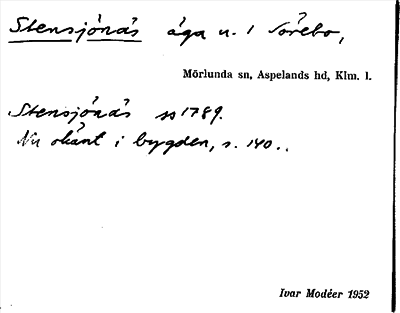 Stensjönäs äga u. 1 Sörebo,
Mörlunda sn, Aspelands hd, Klm. l.
Stensjönäs so 1789.
Nu okänt i bygden, s. 140..
Ivar Modéer 1952